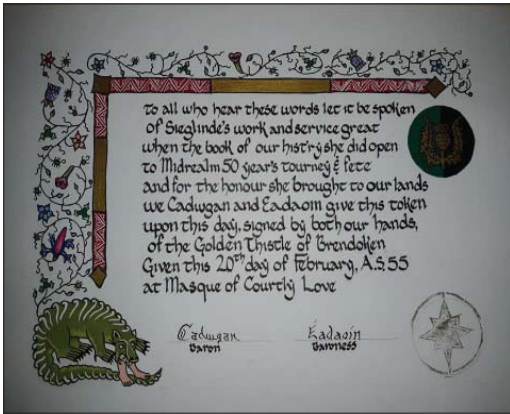 to all who hear these words let it be spoken
of Sieglinde's work and service great
when the book of our hist'ry she did open
to Midrealm 50 year's tourney & fete
and for the honour she brought to our lands
we Cadwgan and Eadaoin give this token
upon this day, signed by both our hands,
of the Golden Thistle of Brendoken
Given this 20th day of February, A.S. 55
at Masque of Courtly Love
Cadwgan Eadaoin
Baron Baroness